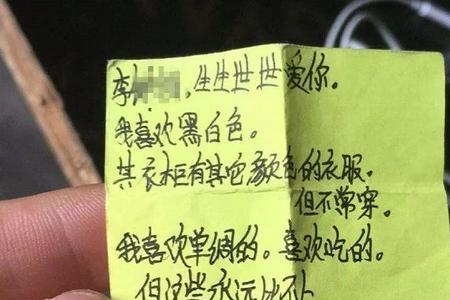 李,生生世世爱你。
我喜欢黑白色。
其衣柜有其它颜色的衣服。
但不常穿。
我喜欢单绸的。喜欢吃的。
但这些永远比不上